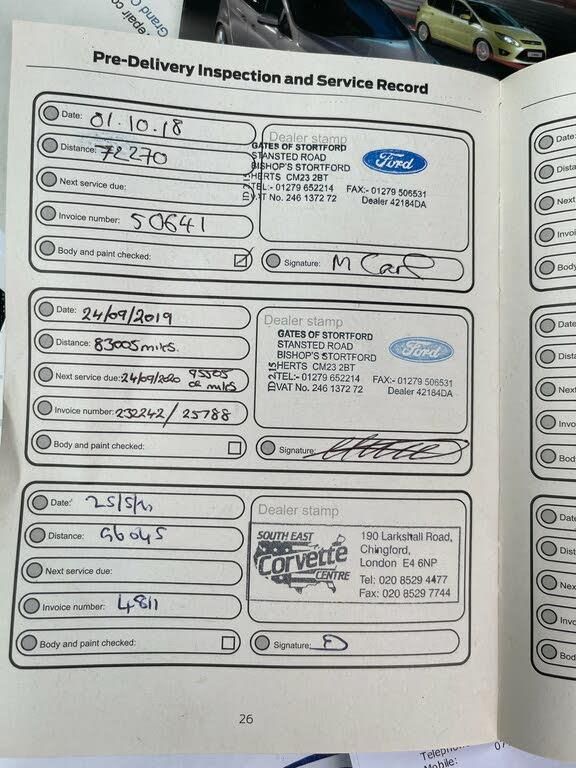 Pre-Delivery Inspection and Service Record
Date: 01.10.18
Distance: 72270
Next service due:
Invoice number: 50641
Body and paint checked:
Dealer stamp
GATES OF STORTFORD
STANSTED ROAD
BISHOP'S STORTFORD
HERTS CM23 2BT
TEL:- 01279 652214 FAX:- 01279 506531
VAT No. 246 1372 72 Dealer 42184DA
Ford
Signature: M Carl
Date: 24/09/2019
Distance: 83005 miles.
Next service due: 24/09/2020 95505 or miles
Invoice number: 232242/25788
Body and paint checked:
Dealer stamp
GATES OF STORTFORD
STANSTED ROAD
BISHOP'S STORTFORD
HERTS CM23 2BT
TEL:- 01279 652214 FAX:- 01279 506531
VAT No. 246 1372 72 Dealer 42184DA
Ford
Signature:
Date: 25/5/21
Distance: 96045
Next service due:
Invoice number: 4811
Body and paint checked:
Dealer stamp
SOUTH EAST
Corvette
CENTRE
190 Larkshall Road,
Chingford,
London E4 6NP
Tel: 020 8529 4477
Fax: 020 8529 7744
Signature:
26
Date:
Next
Body
Date:
Next
Date
Next
Mobile: